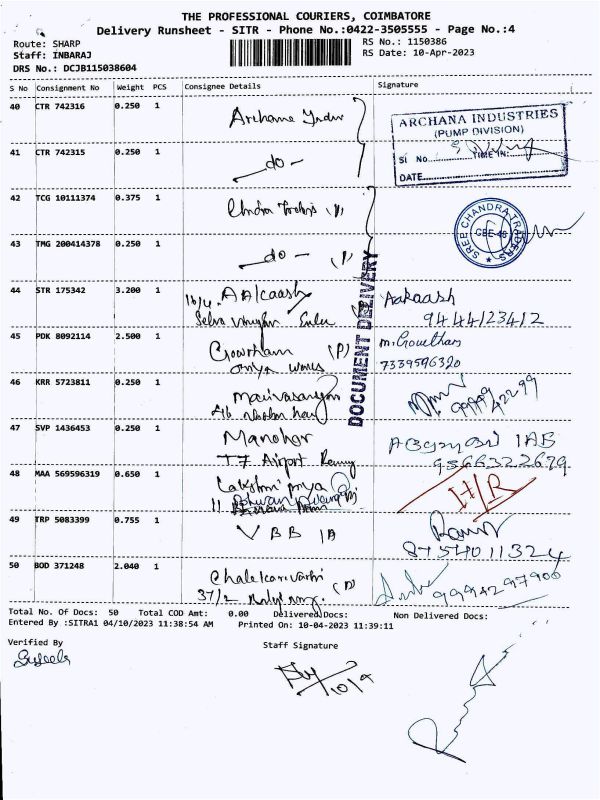 THE PROFESSIONAL COURIERS, COIMBATORE
Delivery Runsheet - SITR - Phone No.:0422-3505555 - Page No.:4
Route: SHARP
RS No.: 1150386
Staff: INBARAJ
RS Date: 10-Apr-2023
DRS No.: DCJB115038604
S No Consignment No Weight PCS Consignee Details Signature
40 CTR 742316 0.250 1
ARCHANA INDUSTRIES
(PUMP DIVISION)
Sl No. TIME IN:
DATE
41 CTR 742315 0.250 1 -do-
42 TCG 10111374 0.375 1 (P)
SREE CHANDRA TRADERS
CBE-46
43 TMG 200414378 0.250 1 -do- (P)
DOCUMENT DELIVERY
44 STR 175342 3.200 1 Aakaash
9444123412
45 PDK 8092114 2.500 1 Gowtham (P) m.Gowtham
7339596320
46 KRR 5723811 0.250 1
999942299
47 SVP 1436453 0.250 1 Manohar
T7 Airport
9566322679
48 MAA 569596319 0.650 1 Lakshmi priya I/R
49 TRP 5083399 0.755 1 VBB
8754011324
50 BOD 371248 2.040 1 (P)
37/2
9994297900
Total No. Of Docs: 50 Total COD Amt: 0.00 Delivered Docs: Non Delivered Docs:
Entered By :SITRA1 04/10/2023 11:38:54 AM Printed On: 10-04-2023 11:39:11
Verified By
Staff Signature
Suseela
10/4